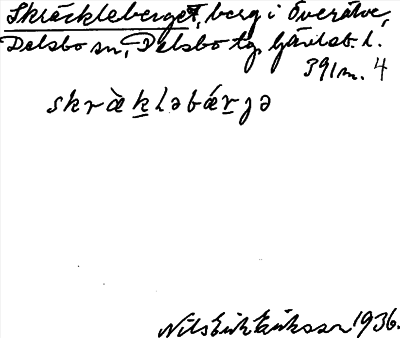 Skräckleberget, berg i Överälve,
Delsbo sn, Delsbo tg. Gävleb. l.
391 m. 4
skràk̲ləbár̲jə
Nils Erik Eriksson 1936.